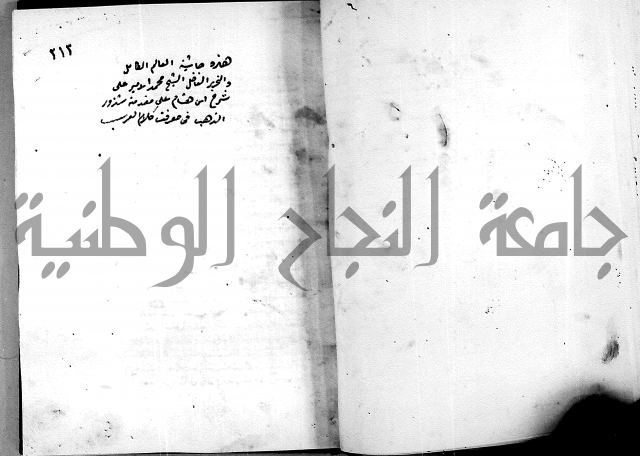 ٣١٣
هذه حاشية العالم الكامل
والخير الفاضل الشيخ محمد الامير على
شرح ابن هشام على مقدمة شزور
الذهب في معرفت كلام العرب
جامعة النجاح الوطنية